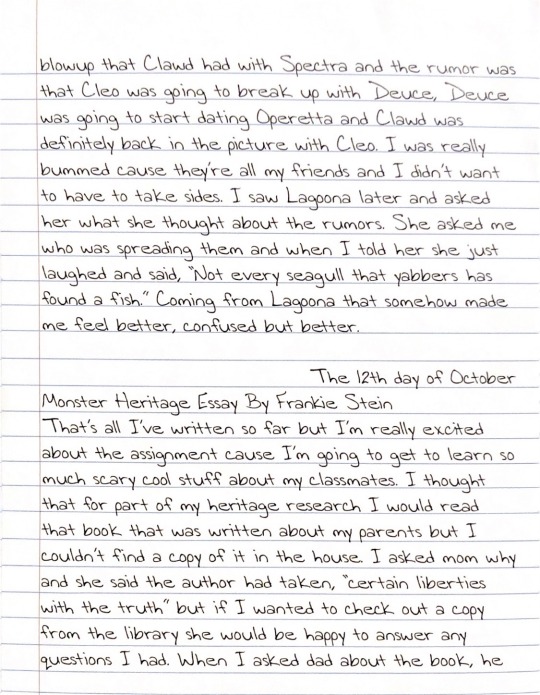 blowup that Clawd had with Spectra and the rumor was
that Cleo was going to break up with Deuce, Deuce
was going to start dating Operetta and Clawd was
definitely back in the picture with Cleo. I was really
bummed cause they're all my friends and I didn't want
to have to take sides. I saw Lagoona later and asked
her what she thought about the rumors. She asked me
who was spreading them and when I told her she just
laughed and said, "Not every seagull that yabbers has
found a fish." Coming from Lagoona that somehow made
me feel better, confused but better.
The 12th day of October
Monster Heritage Essay By Frankie Stein
That's all I've written so far but I'm really excited
about the assignment cause I'm going to get to learn so
much scary cool stuff about my classmates. I thought
that for part of my heritage research I would read
that book that was written about my parents but I
couldn't find a copy of it in the house. I asked mom why
and she said the author had taken, "certain liberties
with the truth" but if I wanted to check out a copy
from the library she would be happy to answer any
questions I had. When I asked dad about the book, he